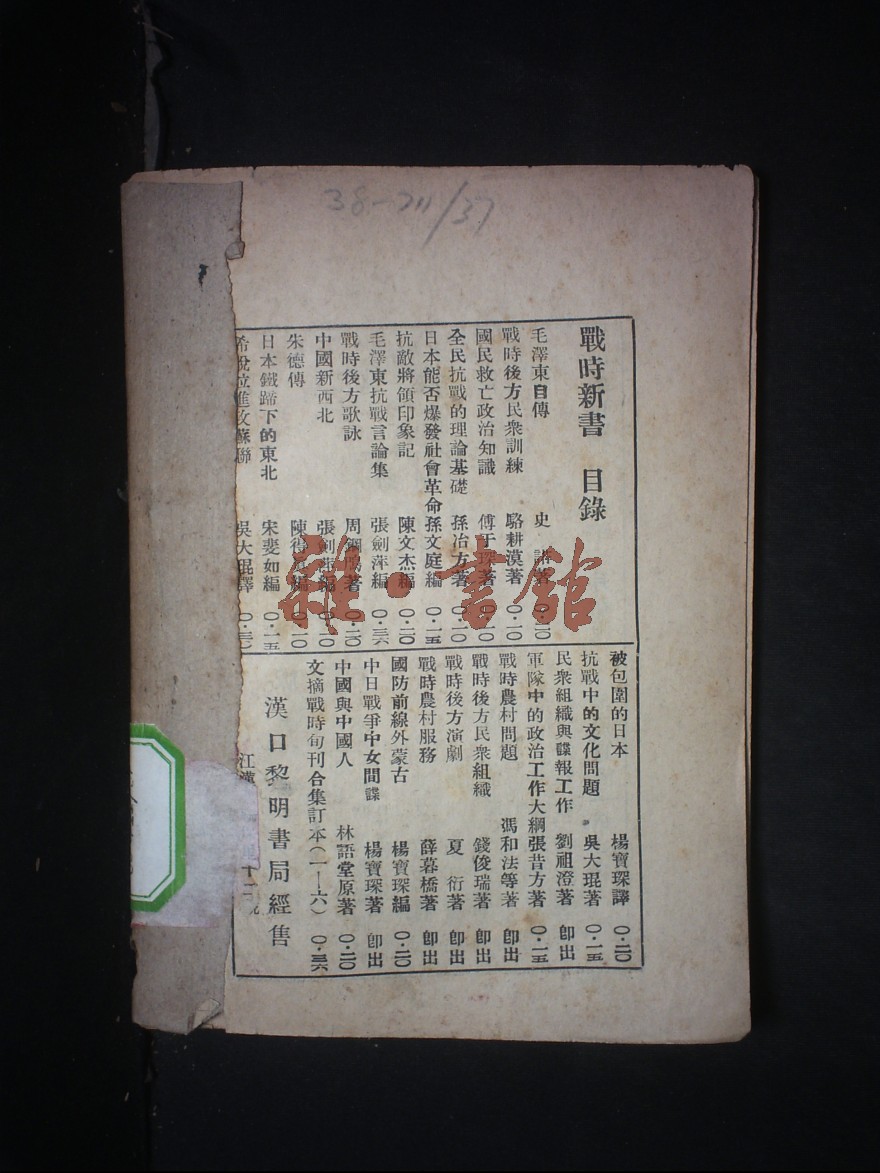 38-711/37
戰時新書 目錄
毛澤東自傳 史 諾著 ○·二○
戰時後方民衆訓練 駱耕漠著 ○·一○
國民救亡政治知識 傅于琛著
全民抗戰的理論基礎 孫冶方著 ○·一○
日本能否爆發社會革命 孫文庭編 ○·一五
抗敵將領印象記 陳文杰編 ○·二○
毛澤東抗戰言論集 張劍萍編 ○·三六
戰時後方歌詠 周鋼鳴著 ○·二○
中國新西北 張劍萍編
朱德傳 編
日本鐵蹄下的東北 宋斐如編 ○·一五
希脫拉進攻蘇聯 吳大琨譯
被包圍的日本 楊寶琛譯 ○·二○
抗戰中的文化問題 吳大琨著 ○·一五
民衆組織與諜報工作 劉祖澄著 卽出
軍隊中的政治工作大綱 張昔方著 ○·一五
戰時農村問題 馮和法等著 卽出
戰時後方民衆組織 錢俊瑞著 卽出
戰時後方演劇 夏 衍著 卽出
戰時農村服務 薛暮橋著 卽出
國防前線外蒙古 楊寶琛編 ○·二○
中日戰爭中女間諜 楊寶琛著 卽出
中國與中國人 林語堂原著 ○·二○
文摘戰時旬刊合集訂本(一—六) ○·三六
漢口黎明書局經售
江漢
十二號
雜·書館